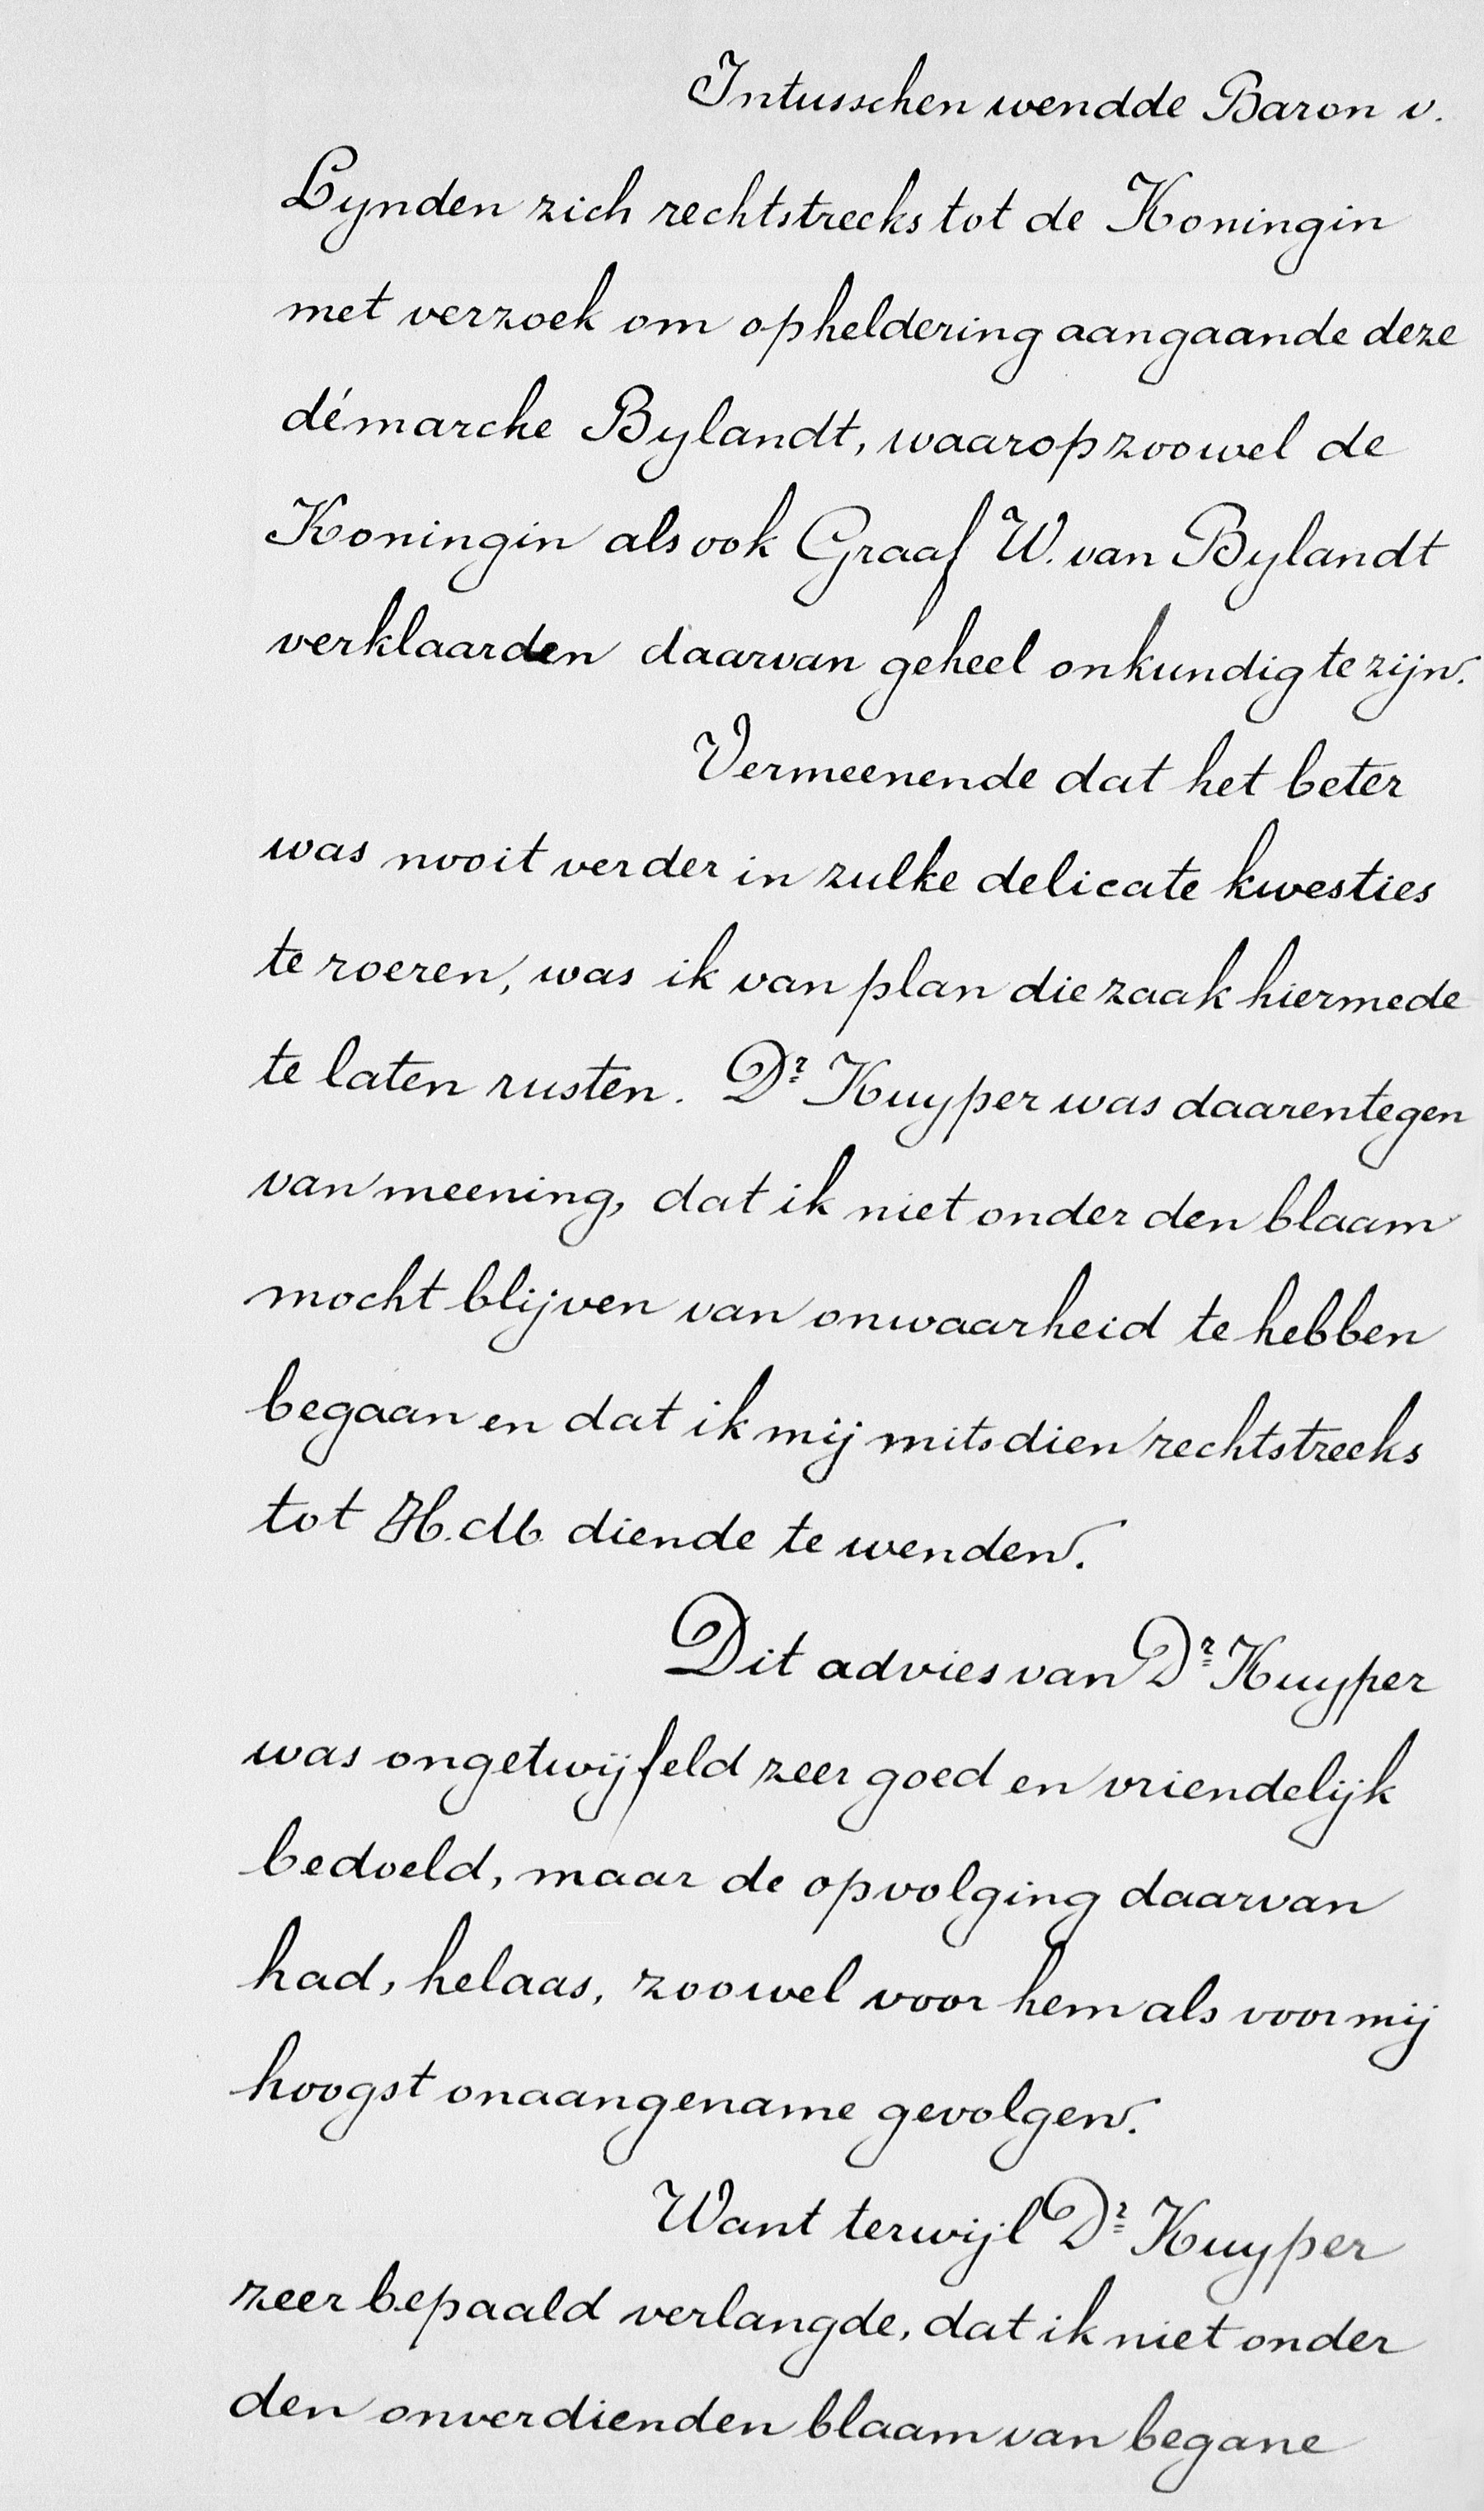 Intusschen wendde Baron v.
Lynden zich rechtstreeks tot de Koningin
met verzoek om opheldering aangaande deze
démarche Bylandt, waarop zoowel de
Koningin als ook Graaf W. van Bylandt
verklaarden daarvan geheel onkundig te zijn.
Vermeenende dat het beter
was nooit verder in zulke delicate kwesties
te roeren, was ik van plan die zaak hiermede
te laten rusten. Dr Kuyper was daarentegen
van meening, dat ik niet onder den blaam
mocht blijven van onwaarheid te hebben
begaan en dat ik mij mitsdien rechtstreeks
tot H.M. diende te wenden.
Dit advies van Dr Kuyper
was ongetwijfeld zeer goed en vriendelijk
bedoeld, maar de opvolging daarvan
had, helaas, zoowel voor hem als voor mij
hoogst onaangename gevolgen.
Want terwijl Dr Kuyper
zeer bepaald verlangde, dat ik niet onder
den onverdienden blaam van begane